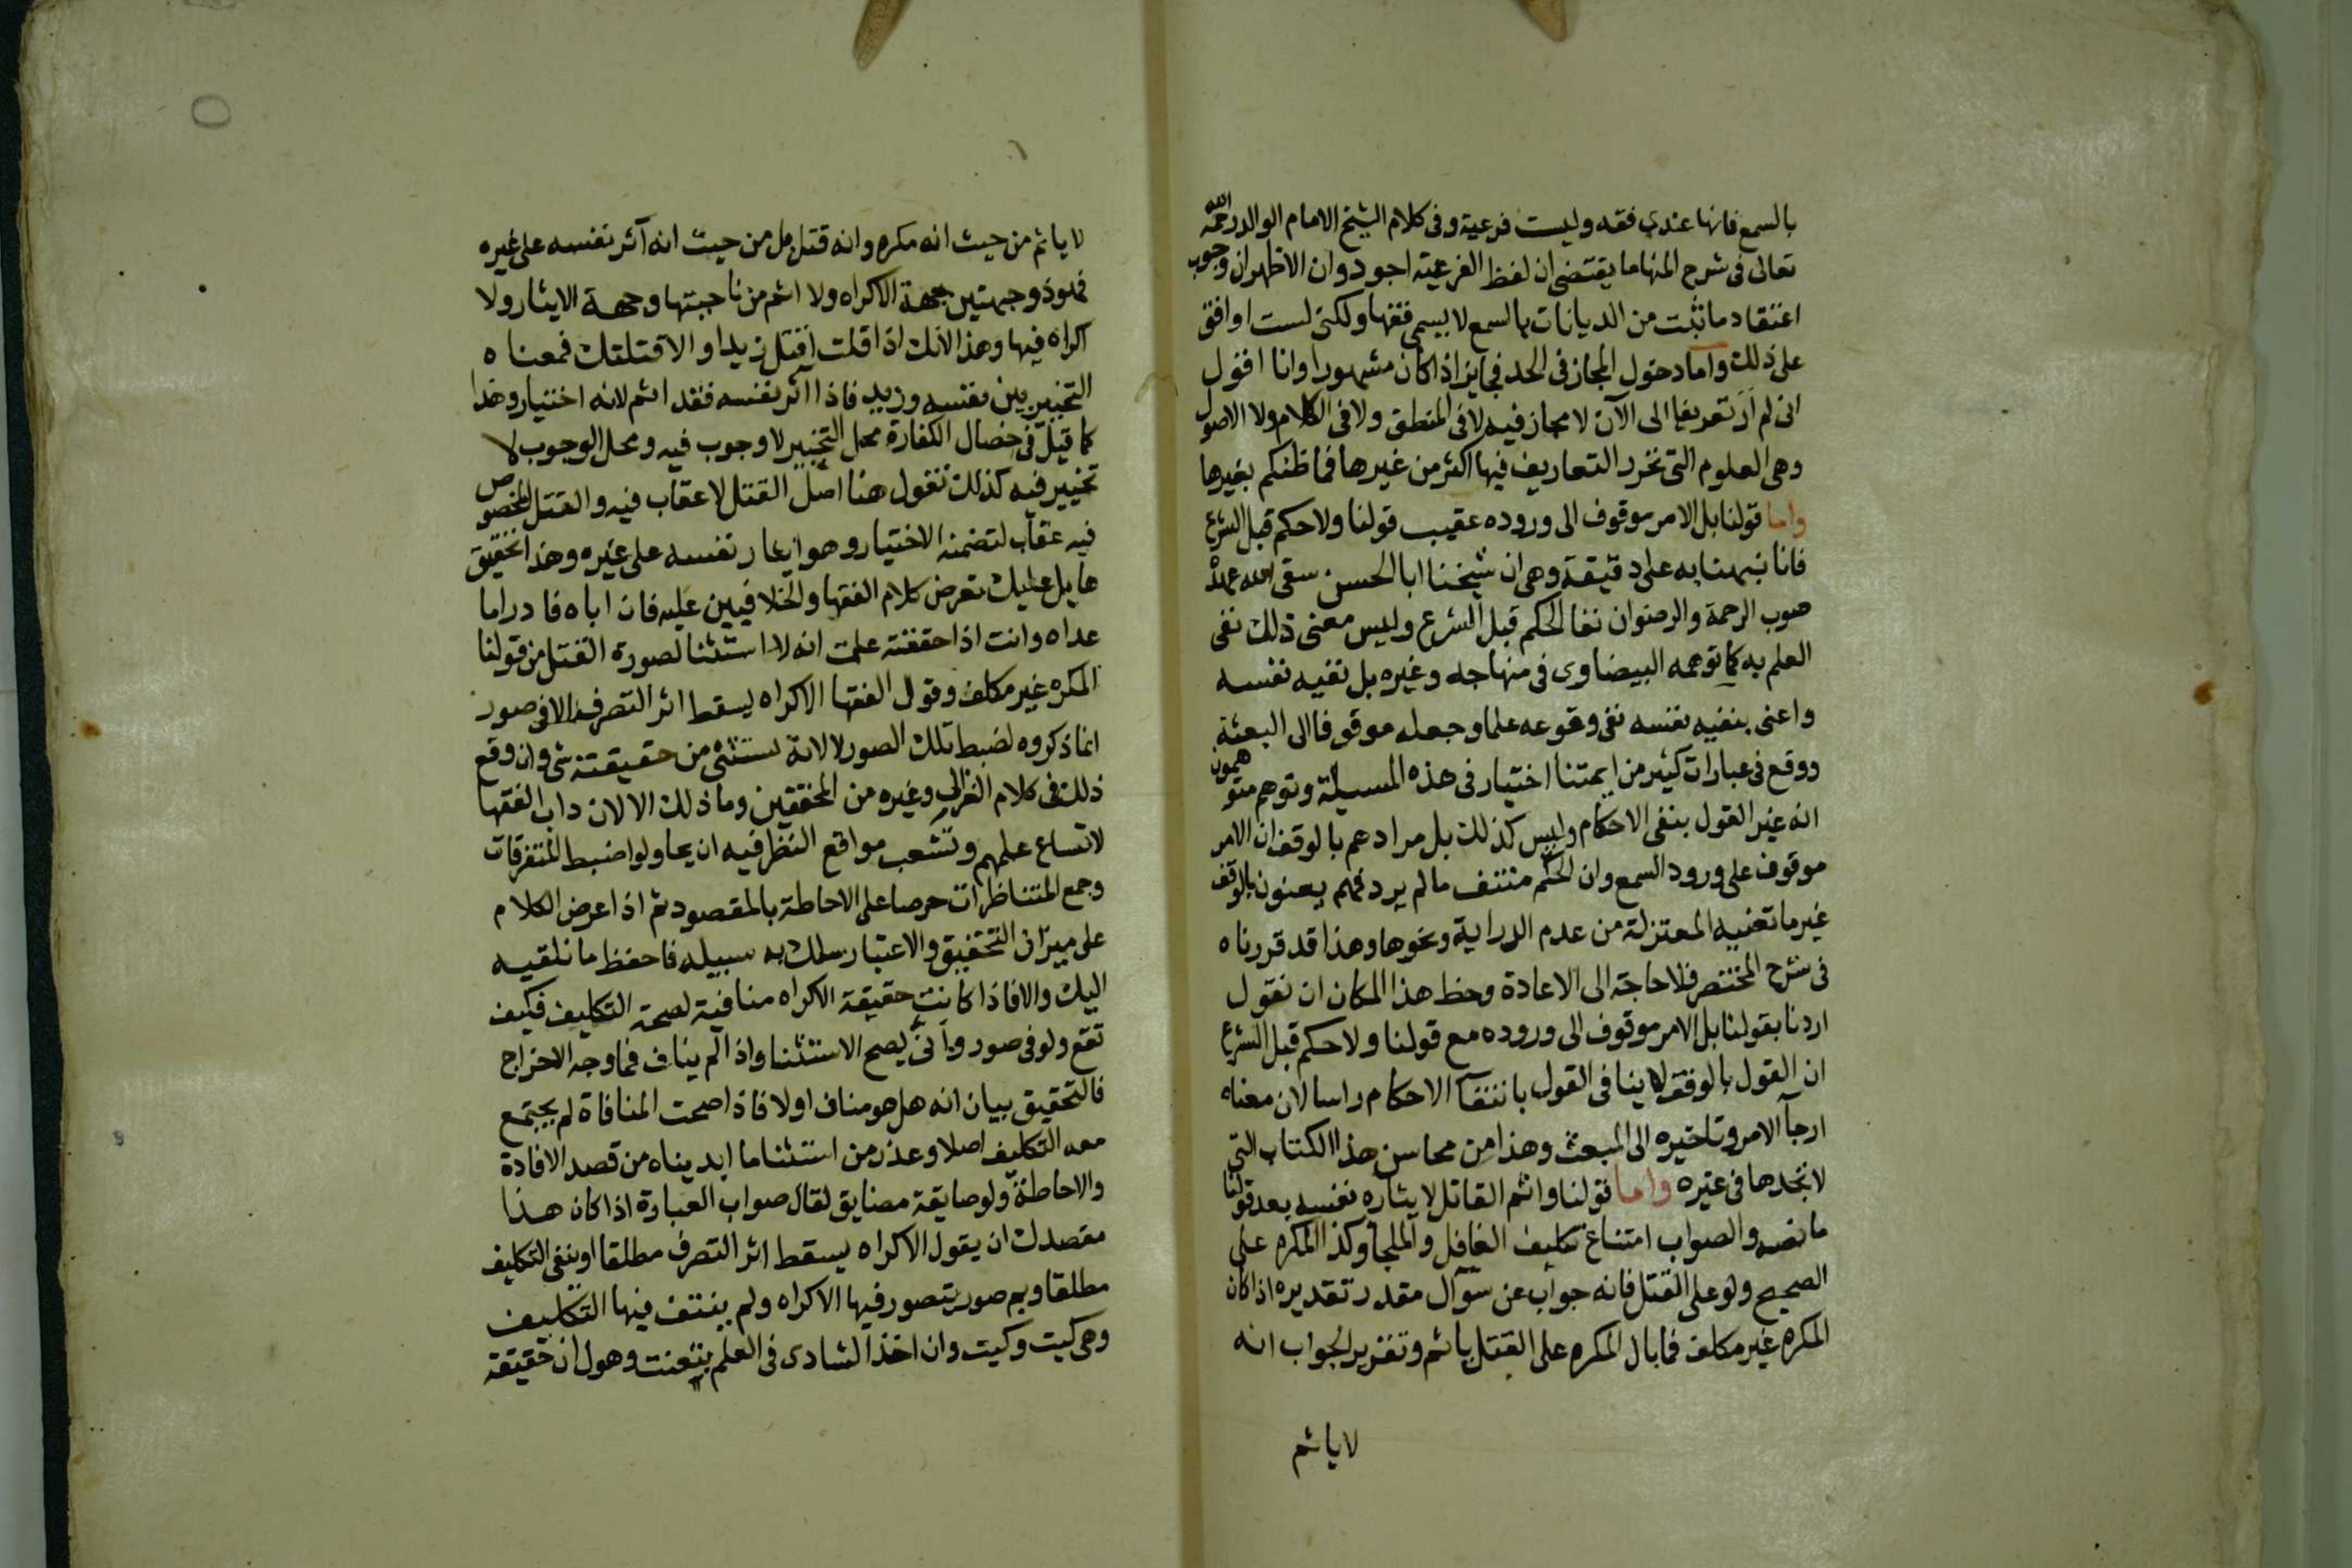 بالسمع فانها عندى فقه وليست فرعية وفى كلام الشيخ الامام الوالد رحمه الله
تعالى فى شرح المنهاما يقتضى ان لفظ الفرعية اجود وان الاظهران وجوب
اعتقاد ما ثبت من الديانات بالسمع لا يسمى فقها ولكنى لست اوافق
على ذلك واما دخول المجاز فى الحد فجايز اذا كان مشهورا وانا اقول
انى لم ار تعريفا الى الآن لا مجاز فيه لا فى المنطق ولا فى الكلام ولا الاصول
وهى العلوم التى تحرر التعاريف فيها اكثر من غيرها فما ظنكم بغيرها
واما قولنا بل الامر موقوف الى وروده عقيب قولنا ولا حكم قبل الشرع
فانا نبهنا به على دقيقة وهى ان شيخنا ابا الحسن سقى الله عهده
صوب الرحمة والرضوان نفا الحكم قبل الشرع وليس معنى ذلك نفى
العلم به كما توهمه البيضاوى فى منهاجه وغيره بل نفيه نفسه
واعنى بنفيه نفسه نفى وقوعه علما وجعله موقوفا الى البعثة
ووقع فى عبارات كثير من ايمتنا اختيار فى هذه المسيلة وتوهم متوهمون
انه غير القول بنفى الاحكام وليس كذلك بل مرادهم بالوقف ان الامر
موقوف على ورود السمع وان الحكم منتف ما لم يرد فهم يعنون بالوقف
غير ما تعنيه المعتزلة من عدم الدراية ونحوها وهذا قد قررناه
فى شرح المختصر فلا حاجة الى الاعادة وحظ هذا المكان ان نقول
اردنا بقولنا بل الامر موقوف الى وروده مع قولنا ولا حكم قبل الشرع
ان القول بالوقف لا ينافى القول بانتفآ الاحكام راسا لان معناه
ارجآ الامر وتاخيره الى المبعث وهذا من محاسن هذا الكتاب التى
لا تجدها فى غيره واما قولنا واثم القاتل لايثاره نفسه بعد قولنا
ما نصه والصواب امتناع تكليف الغافل والملجأ وكذا المكره على
الصحيح ولو على القتل فانه جواب عن سوآل مقدر تقديره اذا كان
المكره غير مكلف فما بال المكره على القتل ياثم وتقرير الجواب انه
لا ياثم
لا ياثم من حيث انه مكره وانه قتل بل من حيث انه آثر نفسه على غيره
فهو ذو جهتين جهة الاكراه ولا اثم من ناحيتها وجهة الايثار ولا
اكراه فيها وهذا لانك اذا قلت اقتل زيدا والا قتلتك فمعناه
التخيير بين نفسه وزيد فاذا اآثر نفسه فقد اثم لانه اختيار وهذا
كما قيل فى خصال الكفارة محل التخيير لا وجوب فيه ومحل الوجوب لا
تخيير فيه كذلك نقول هنا اصل القتل لا عقاب فيه والقتل المخصوص
فيه عقاب لتضمنه الاختيار وهو ايثار نفسه على غيره وهذا تحقيق
هايل عليك تعرض كلام الفقها والخلافيين عليه فان اباه فادرا ما
عداه وانت اذا حققته علمت انه لا استثنا لصورة القتل من قولنا
المكره غير مكلف وقول الفقها الاكراه يسقط اثر التصرف الا فى صور
انما ذكروه لضبط تلك الصور لا لانه يستثنى من حقيقته شى وان وقع
ذلك فى كلام الغزالى وغيره من المحققين وما ذلك الا لان داب الفقها
لاتساع علمهم وتشعب مواقع النظر فيه ان يحاولوا ضبط المتفرقات
وجمع المتناظرات حرصا على الاحاطة بالمقصود ثم اذا عرض الكلام
على ميزان التحقيق والاعتبار سلك به سبيله فاحفظ ما نلقيه
اليك والا فاذا كانت حقيقة الاكراه منافية لصحة التكليف فكيف
تقع ولو فى صور وأنى يصح الاستثنا واذا لم يناف فما وجه الاخراج
فالتحقيق بيان انه هل هو مناف او لا فاذا صحت المنافاة لم يجتمع
معه التكليف اصلا وعذر من استثنا ما ابديناه من قصد الافادة
والاحاطة ولو ضايقه مضايق لقال صواب العبارة اذا كان هذا
مقصدك ان يقول الاكراه يسقط اثر التصرف مطلقا او ينفى التكليف
مطلقا وثم صور يتصور فيها الاكراه ولم ينتف فيها التكليف
وهى كيت وكيت وان اخذ الشادى فى العلم يتعنت وهول ان حقيقة